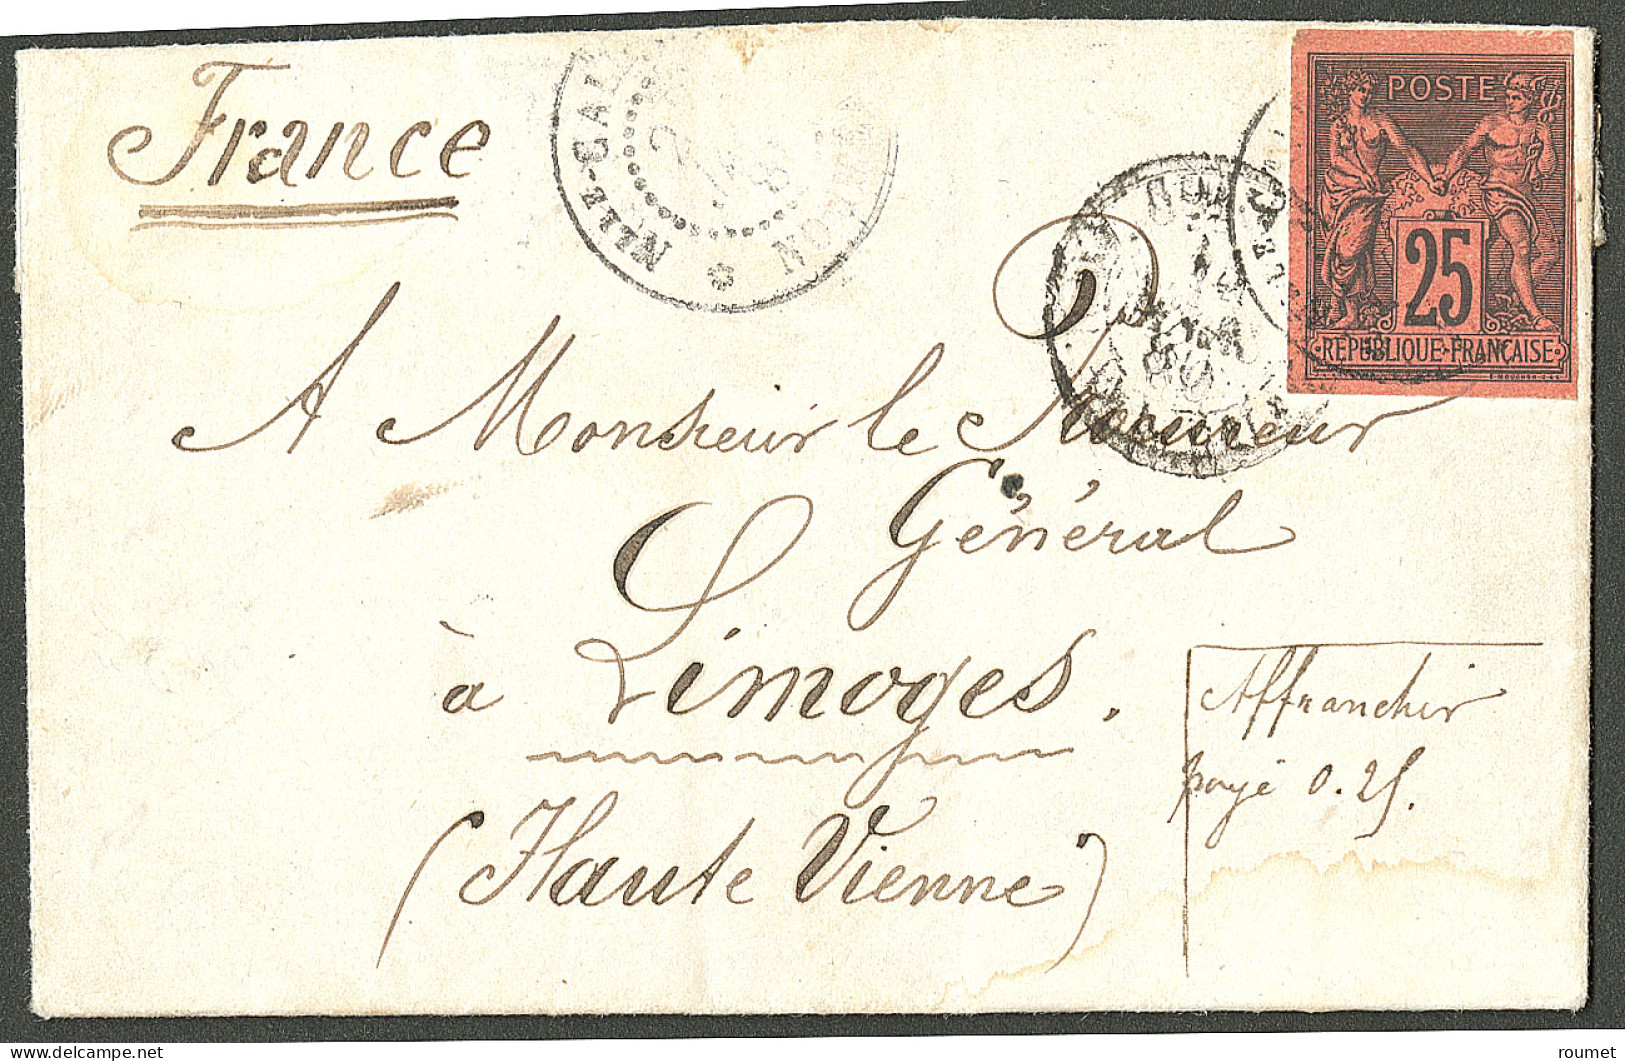 France
NLLE-CAL
NOUMEA
POSTE
25
REPUBLIQUE FRANÇAISE
A Monsieur le Procureur
Général
à Limoges.
(Haute Vienne)
Affranchir
payé 0.25.
roumet
delcampe.net